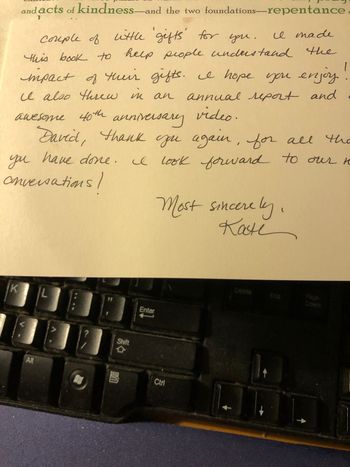 and acts of kindness—and the two foundations—repentance
couple of little 'gifts' for you. I made
this book to help people understand the
impact of their gifts. I hope you enjoy!
I also threw in an annual report and
awesome 40th anniversary video.
David, thank you again, for all
you have done. I look forward to our
conversations!
Most sincerely,
Kate
K
L
:
;
"
'
Enter
<
,
>
.
?
/
Shift
Alt
Ctrl
Delete
End